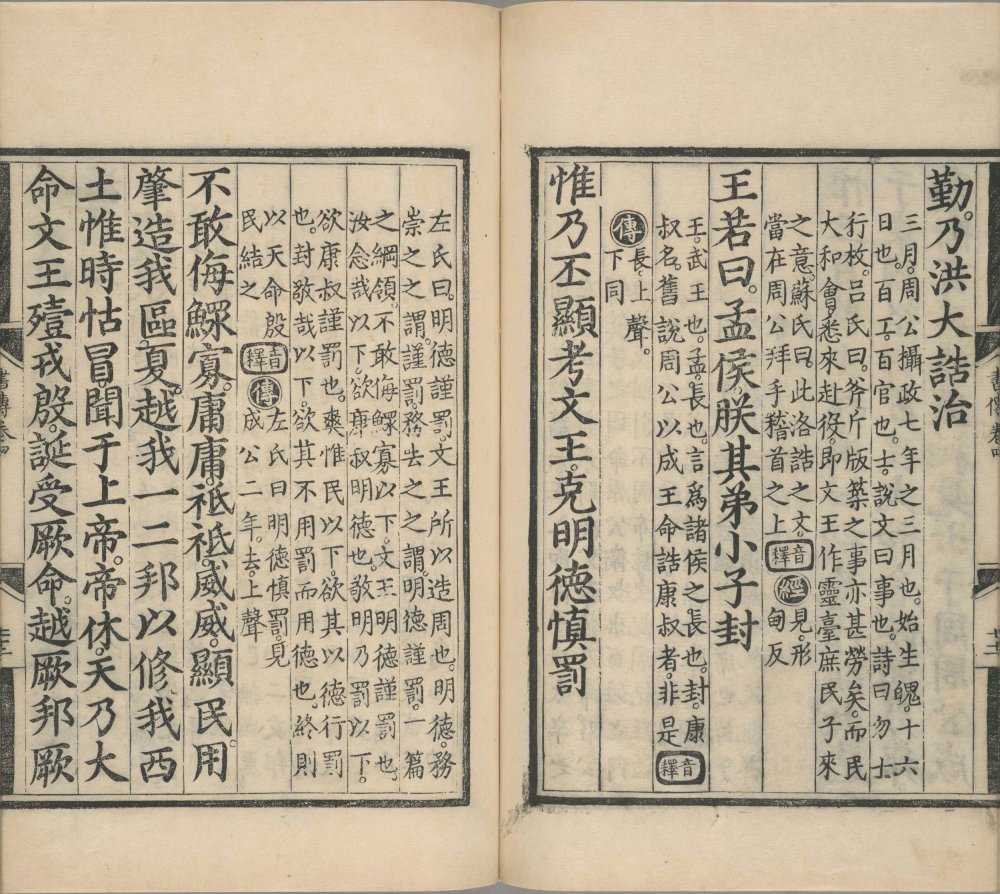 勤。乃洪大誥治
三月。周公攝政七年之三月也。始生魄。十六
日也。百工。百官也。士。說文曰事也。詩曰勿士
行枚。呂氏曰。斧斤版築之事亦甚勞矣。而民
大和會。悉來赴役。即文王作靈臺庶民子來
之意。蘇氏曰。此洛誥之文。
當在周公拜手稽首之上
音釋
經
見。形
甸反
王若曰。孟侯朕其弟小子封
王。武王也。孟。長也。言為諸侯之長也。封。康
叔名。舊說周公以成王命誥康叔者。非是
音釋
傳
長。上聲。
下同
惟乃丕顯考文王。克明德慎罰
左氏曰。明德謹罰。文王所以造周也。明德。務
崇之之謂。謹罰。務去之之謂。明德謹罰。一篇
之綱領。不敢侮鰥寡以下。文王明德謹罰也。
汝念哉以下。欲康叔明德也。敬明乃罰以下。
欲康叔謹罰也。爽惟民以下欲其以德行罰
也。封敬哉以下。欲其不用罰而用德也。終則
以天命殷
民結之
音釋
傳
左氏曰明德慎罰。見
成公二年。去。上聲
不敢侮鰥寡。庸庸。祗祗。威威。顯民。用
肇造我區夏。越我一二邦以修我西
土惟時怙冒。聞于上帝。帝休。天乃大
命文王殪戎殷。誕受厥命。越厥邦厥
書傳卷四